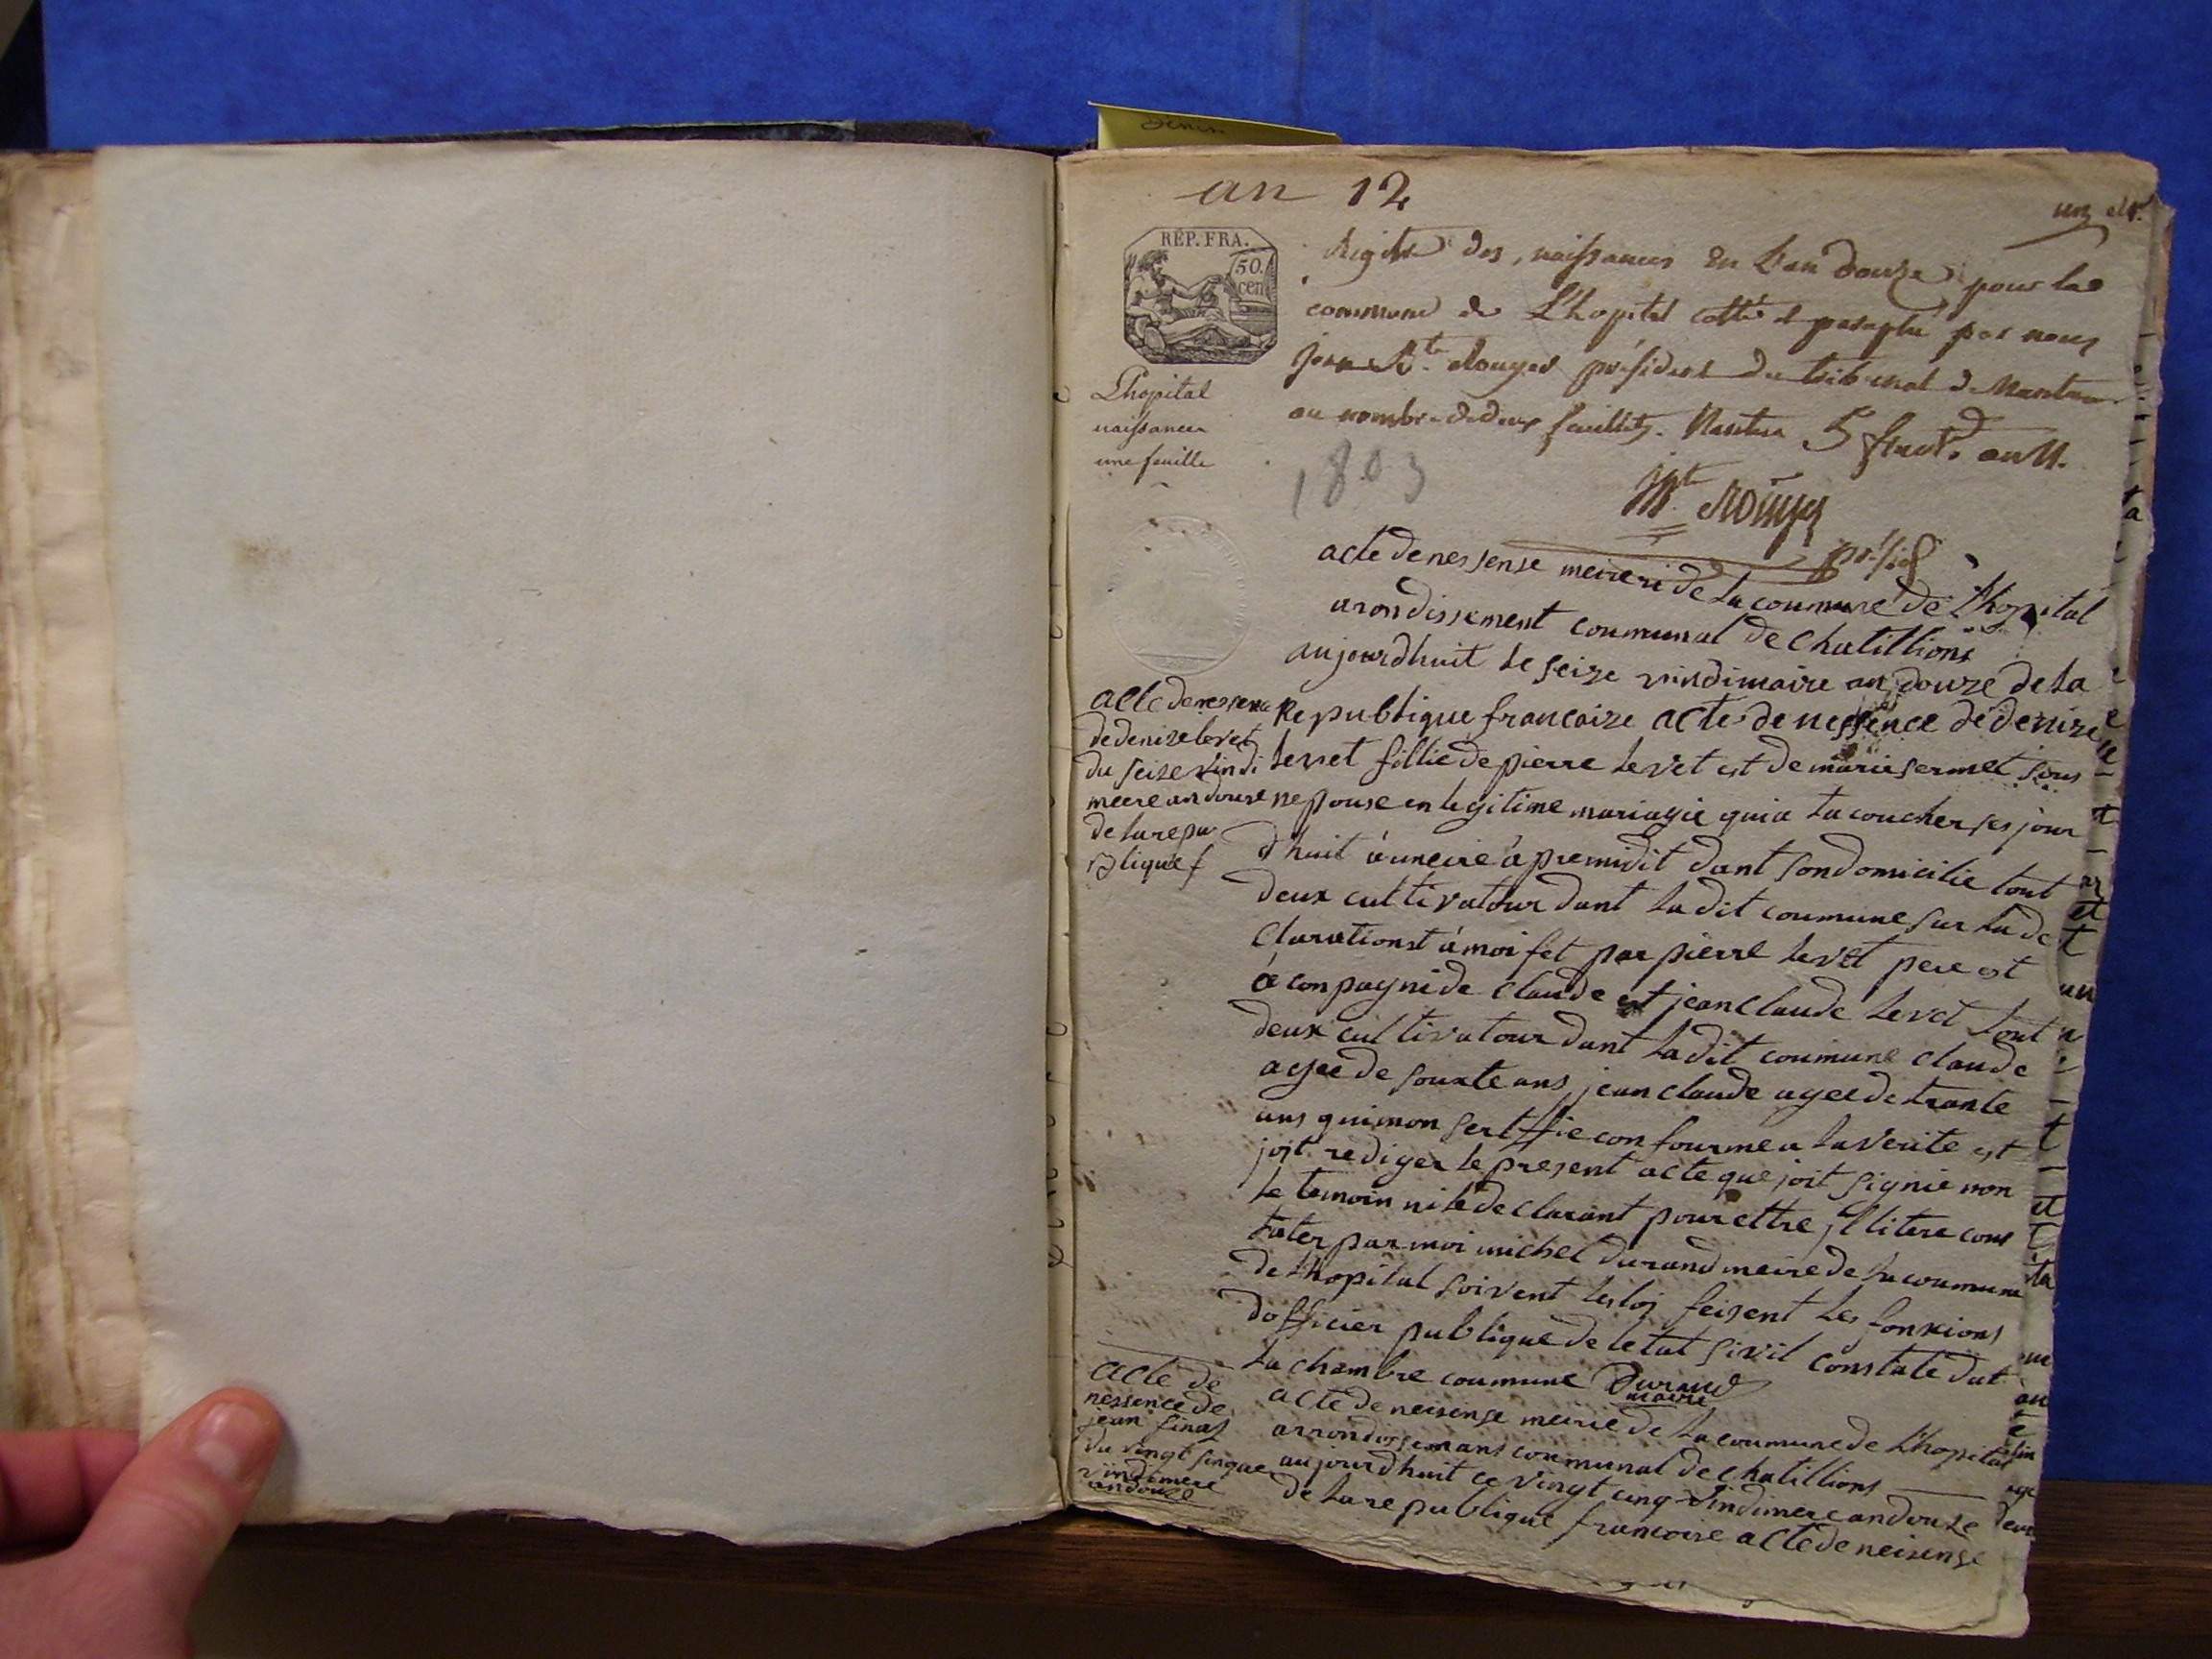 an 12
REP. FRA.
50.
cen
L'hopital
naissances
une feuille
Registre des naissances en L'an douze pour la
commune de L'hopital cotté et paraphé par nous
président du tribunal de Nantua
au nombre de deux feuillets. Nantua 5 fruct. an 11.
1803
acte de nessense meireri de La coumune de L'hopital
arondissement coumunal de Chatillions
aujourdhuit Le seize vindimaire an douze de La
Republique francaize acte de nessence de denize
Levret fillie de pierre Levet est de marie sermet sous
nepouse en legitime mariagie qui a La coucher ses jour
dhuit à uneire à premidit dant son domicilie tout
deux cultivatour dant La dit coumune sur La de
Clarationst à moi fet par pierre Levet pere est
à conpagni de Claude est jean Claude Levet tout
deux cultivatour dant La dit coumune Claude
agee de souxte ans jean Claude agee de trante
ans qui mon sertiffie con fourme a La verite est
joit rediger le present acte que joit signie non
Le temoin ni Le declarant pour ettre jllitere cons
tater par moi michel durand meire de La coumune
de L'hopital soivent Les loi feisent Les fonxions
dofficier publique de letat sivil Constate dat
La chambre coumune Durand
maire
acte de nessence
de denize levet
du seize vindi
meere an douze
de La repu
blique f
acte de
nessence de
jean
du vingt sinque
vindemere
an douze
acte de neisense meirie de La coumune de L'hopital
arrondissemans coumunal de Chatillions
aujourdhuit ce vingt cinq vindimere an douze
de La republique francoise acte de neisense